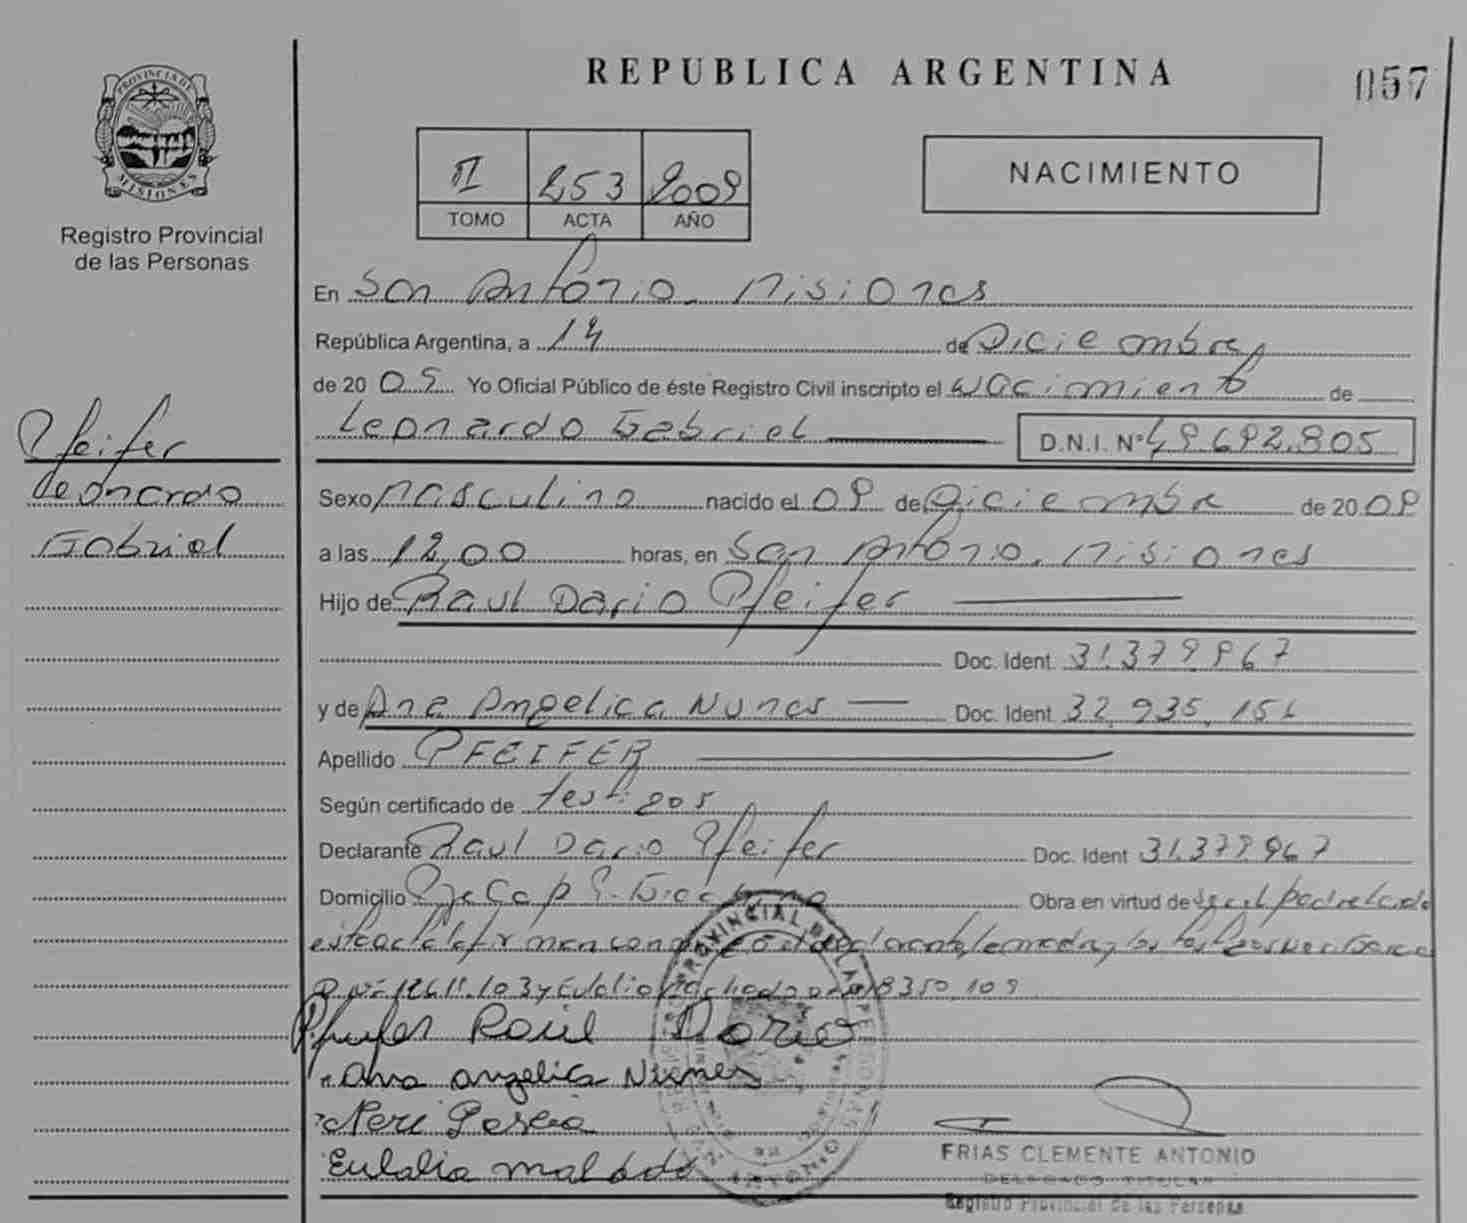 REPUBLICA ARGENTINA
057
PROVINCIA DE
MISIONES
Registro Provincial
de las Personas
II 253 2009
TOMO ACTA AÑO
NACIMIENTO
En San Antonio. Misiones
República Argentina, a 14 de Diciembre,
de 2009 Yo Oficial Público de éste Registro Civil inscripto el Nacimiento de
Leonardo Gabriel D.N.I. Nº 49.692.805
Pfeifer
Leonardo
Gabriel
Sexo Masculino nacido el 09 de Diciembre de 2009
a las 12,00 horas, en San Antonio, Misiones
Hijo de Raul Dario Pfeifer
Doc. Ident. 31.379.967
y de Ana Angelica Nunes Doc. Ident. 32.935.156
Apellido PFEIFER
Según certificado de testigos
Declarante Raul Dario Pfeifer Doc. Ident 31.379.967
Domicilio Obra en virtud de
Raúl Dario
Ana angelica Nunes
Nere
Eulalia
PROVINCIAL DE LAS PERSONAS
SAN ANTONIO
FRIAS CLEMENTE ANTONIO
DELEGADO TITULAR
Registro Provincial de las Personas